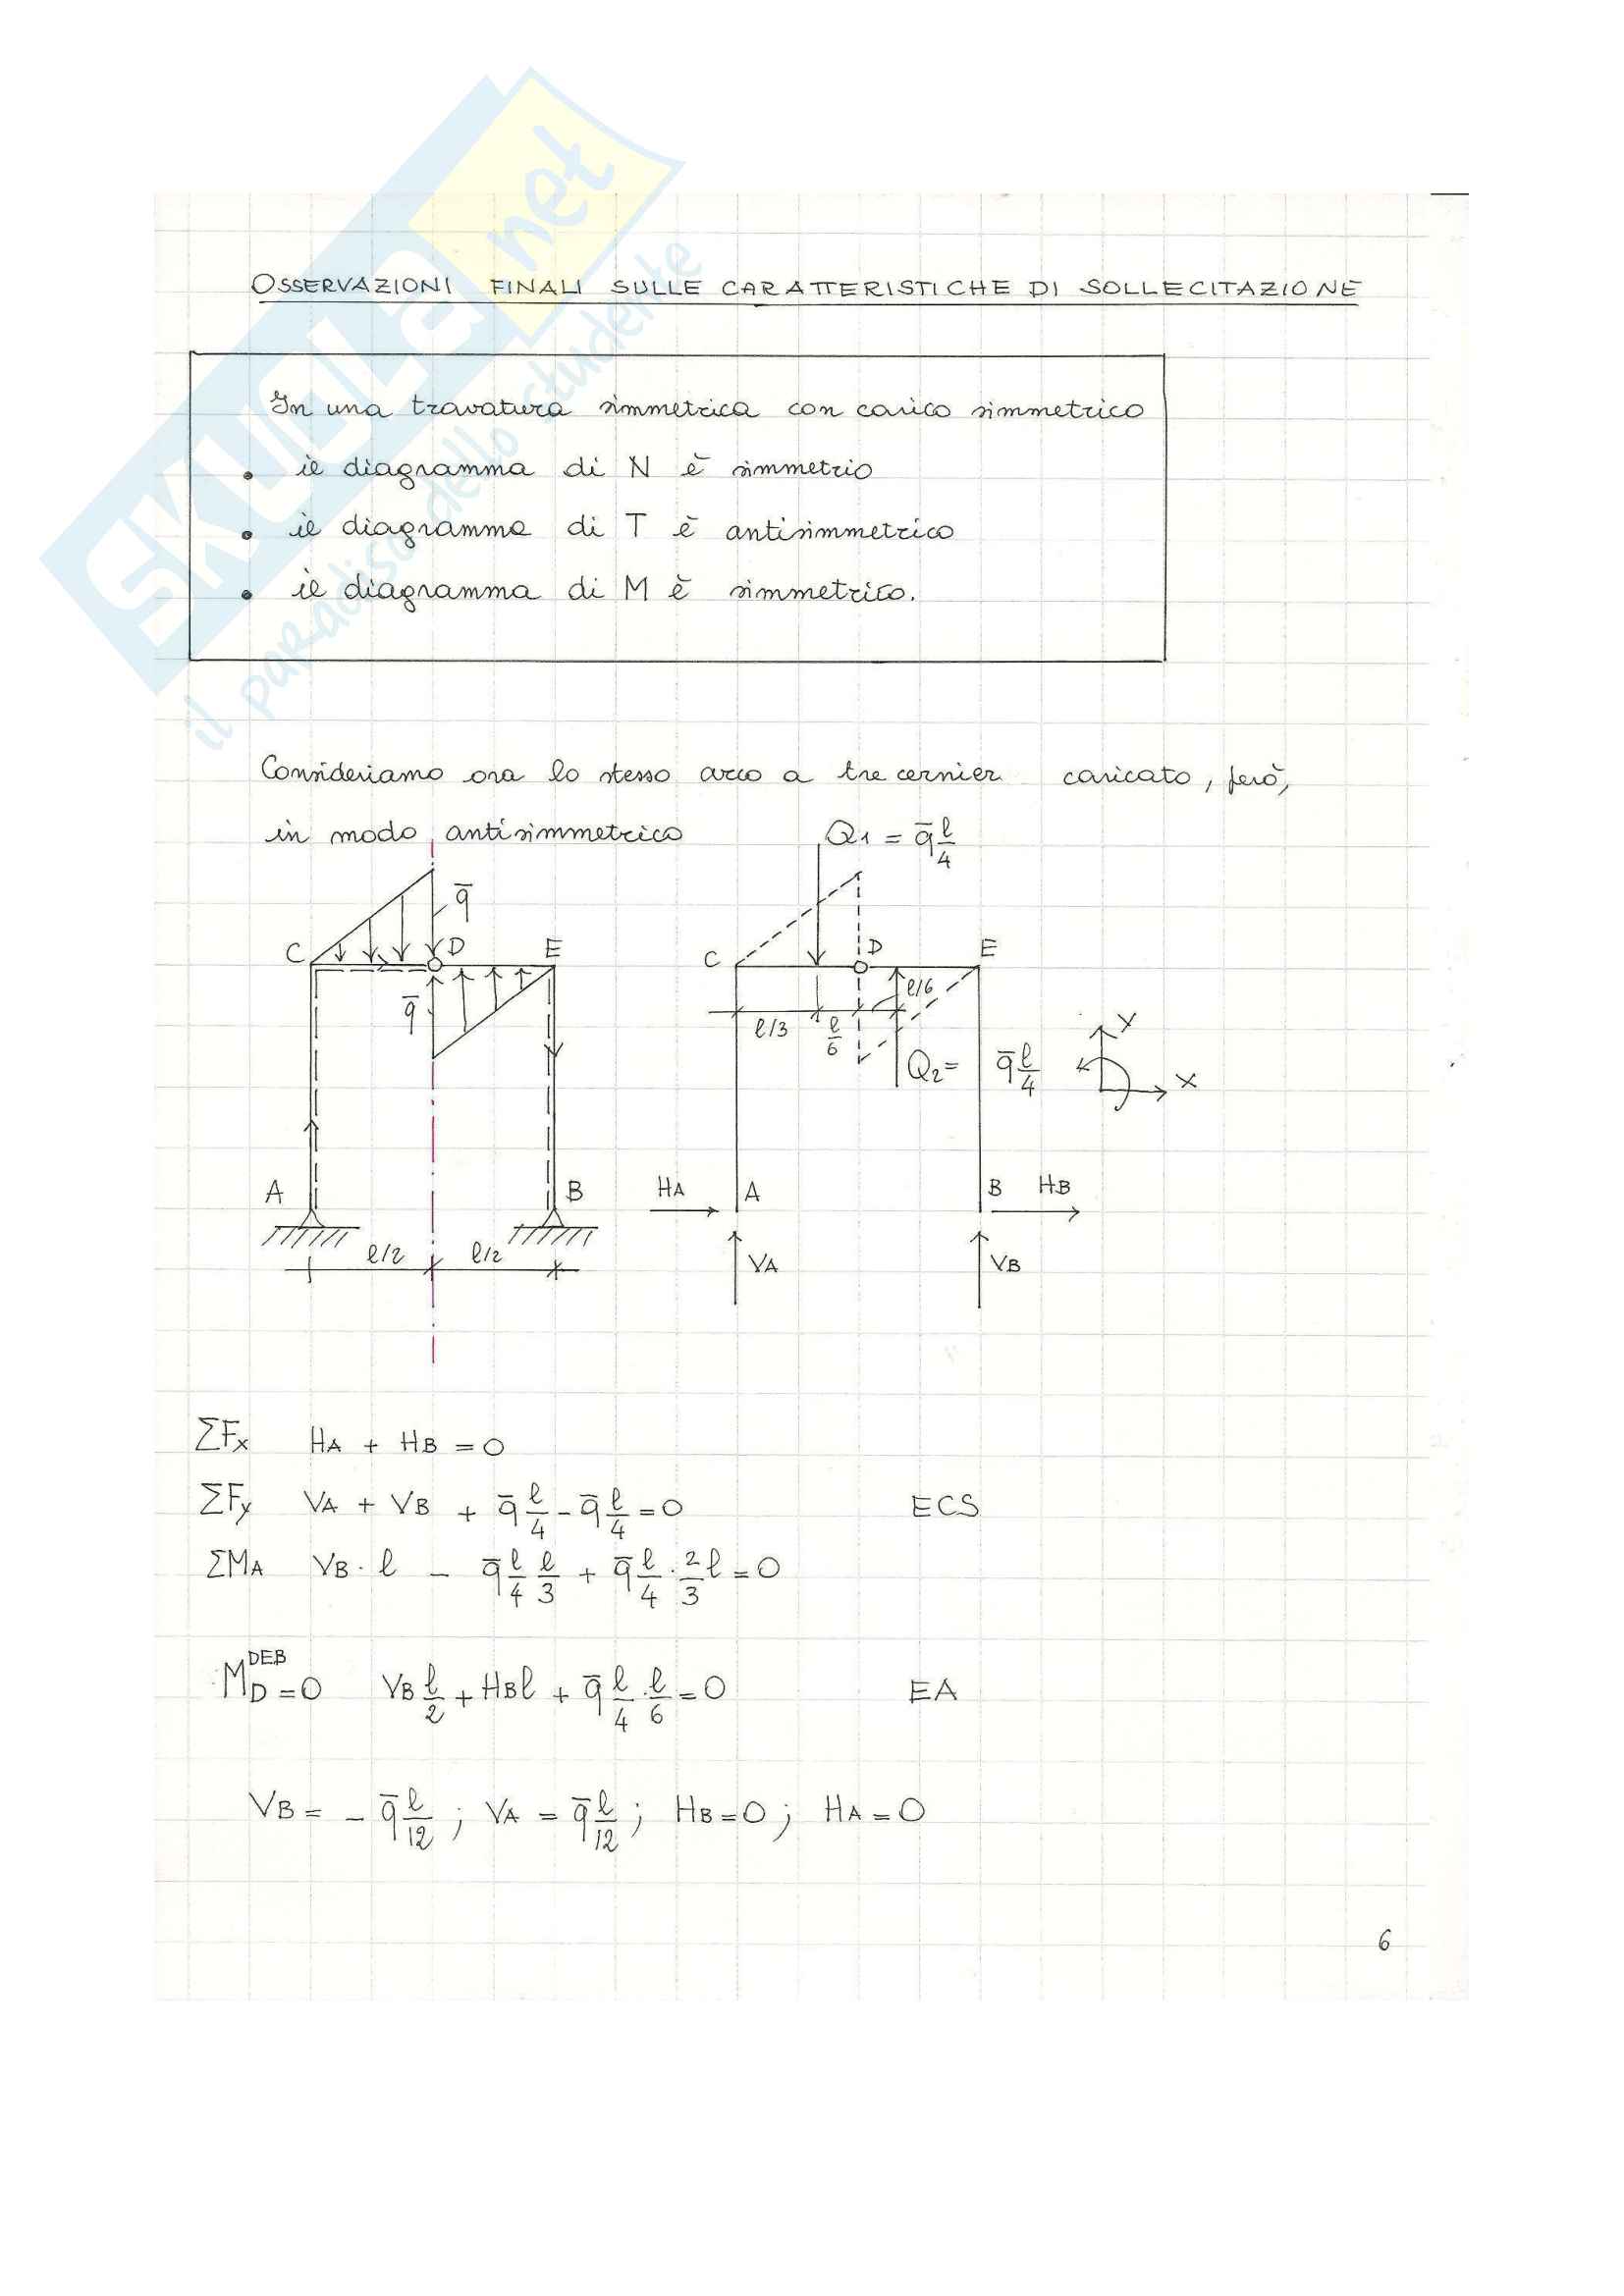 SKUOLA.net
il paradiso dello studente
OSSERVAZIONI FINALI SULLE CARATTERISTICHE DI SOLLECITAZIONE
In una travatura simmetrica con carico simmetrico
• il diagramma di N è simmetrio
• il diagramma di T è antisimmetrico
• il diagramma di M è simmetrico.
Consideriamo ora lo stesso arco a tre cernier caricato, però,
in modo antisimmetrico
Q1 = q̅ l/4
q̅
C D E
q̅
A B
l/2 l/2
C D E
l/6
l/3 l/6
Q2 = q̅ l/4
Y
X
HA A B HB
VA VB
ΣFx HA + HB = 0
ΣFy VA + VB + q̅ l/4 - q̅ l/4 = 0 ECS
ΣMA VB · l - q̅ l/4 l/3 + q̅ l/4 · 2/3 l = 0
M_D^DEB = 0 VB l/2 + HB l + q̅ l/4 · l/6 = 0 EA
VB = - q̅ l/12 ; VA = q̅ l/12 ; HB = 0 ; HA = 0
6